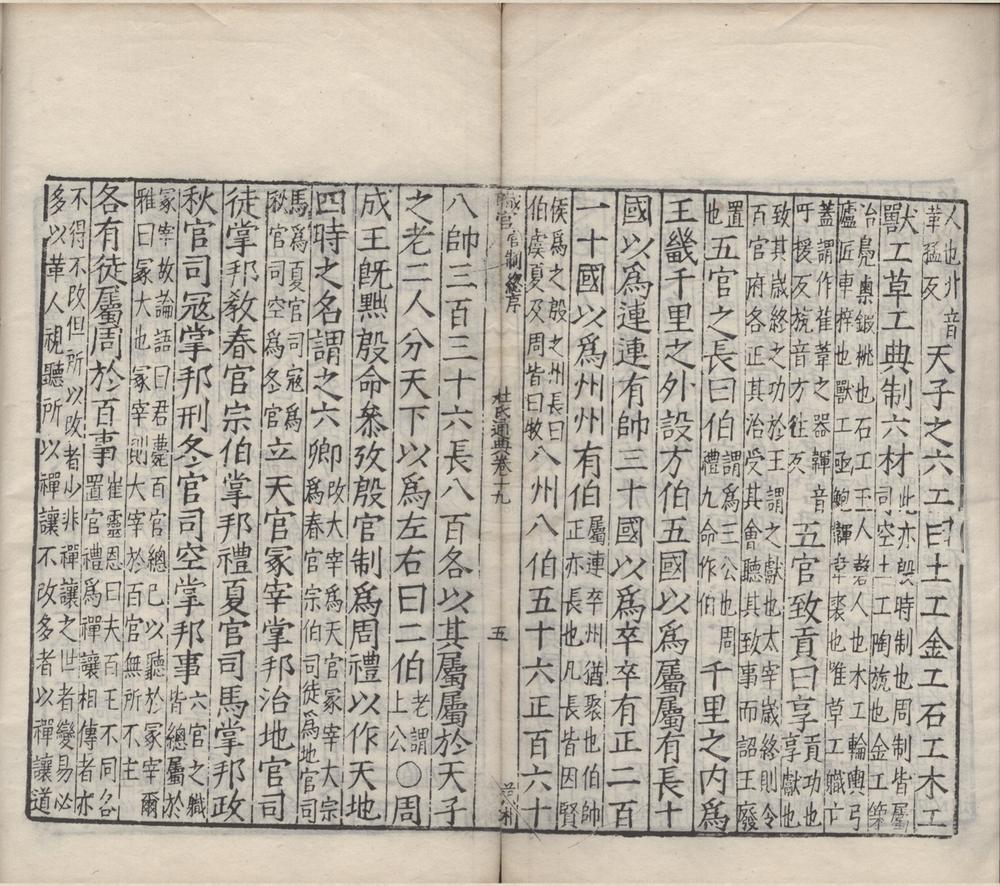 人也卝音
革猛反
天子之六工曰土工金工石工木工
獸工草工典制六材
此亦殷時制也周制皆屬
司空土工陶旊也金工築
冶鳧㮚鍜桃也石工玉人磬人也木工輪輿弓
廬匠車梓也獸工函鮑韗韋裘也唯草工職亡
蓋謂作萑葦之器韗音
吁援反旊音方往反
五官致貢曰享
貢功也
享獻也
致其歲終之功於王謂之獻也太宰歲終則令
百官府各正其治受其會聽其致事而詔王廢
置
也
五官之長曰伯
謂爲三公也周
禮九命作伯
千里之内爲
王畿千里之外設方伯五國以爲屬屬有長十
國以爲連連有帥三十國以爲卒卒有正二百
一十國以爲州州有伯
屬連卒州猶聚也伯帥
正亦長也凡長皆因賢
侯爲之殷之州長曰
伯虞夏及周皆曰牧
八州八伯五十六正百六十
職官 官制總序
杜氏通典卷十九
五
八帥三百三十六長八百各以其屬屬於天子
之老二人分天下以爲左右曰二伯
老謂
上公
○周
成王旣黜殷命叅攷殷官制爲周禮以作天地
四時之名謂之六卿
改太宰爲天官冢宰大宗
爲春官宗伯司徒爲地官司
馬爲夏官司寇爲
秋官司空爲冬官
立天官冢宰掌邦治地官司
徒掌邦敎春官宗伯掌邦禮夏官司馬掌邦政
秋官司寇掌邦刑冬官司空掌邦事
六官之職
皆總屬於
冢宰故論語曰君薨百官總己以聽於冢宰爾
雅曰冢大也冢宰則大宰於百官無所不主
各有徒屬周於百事
崔靈恩曰夫百王不同各
置官禮爲禪讓相傳者亦
不得不改但所以改者少非禪讓之世者變易必
多以革人視聽所以禪讓不改多者以禪讓道